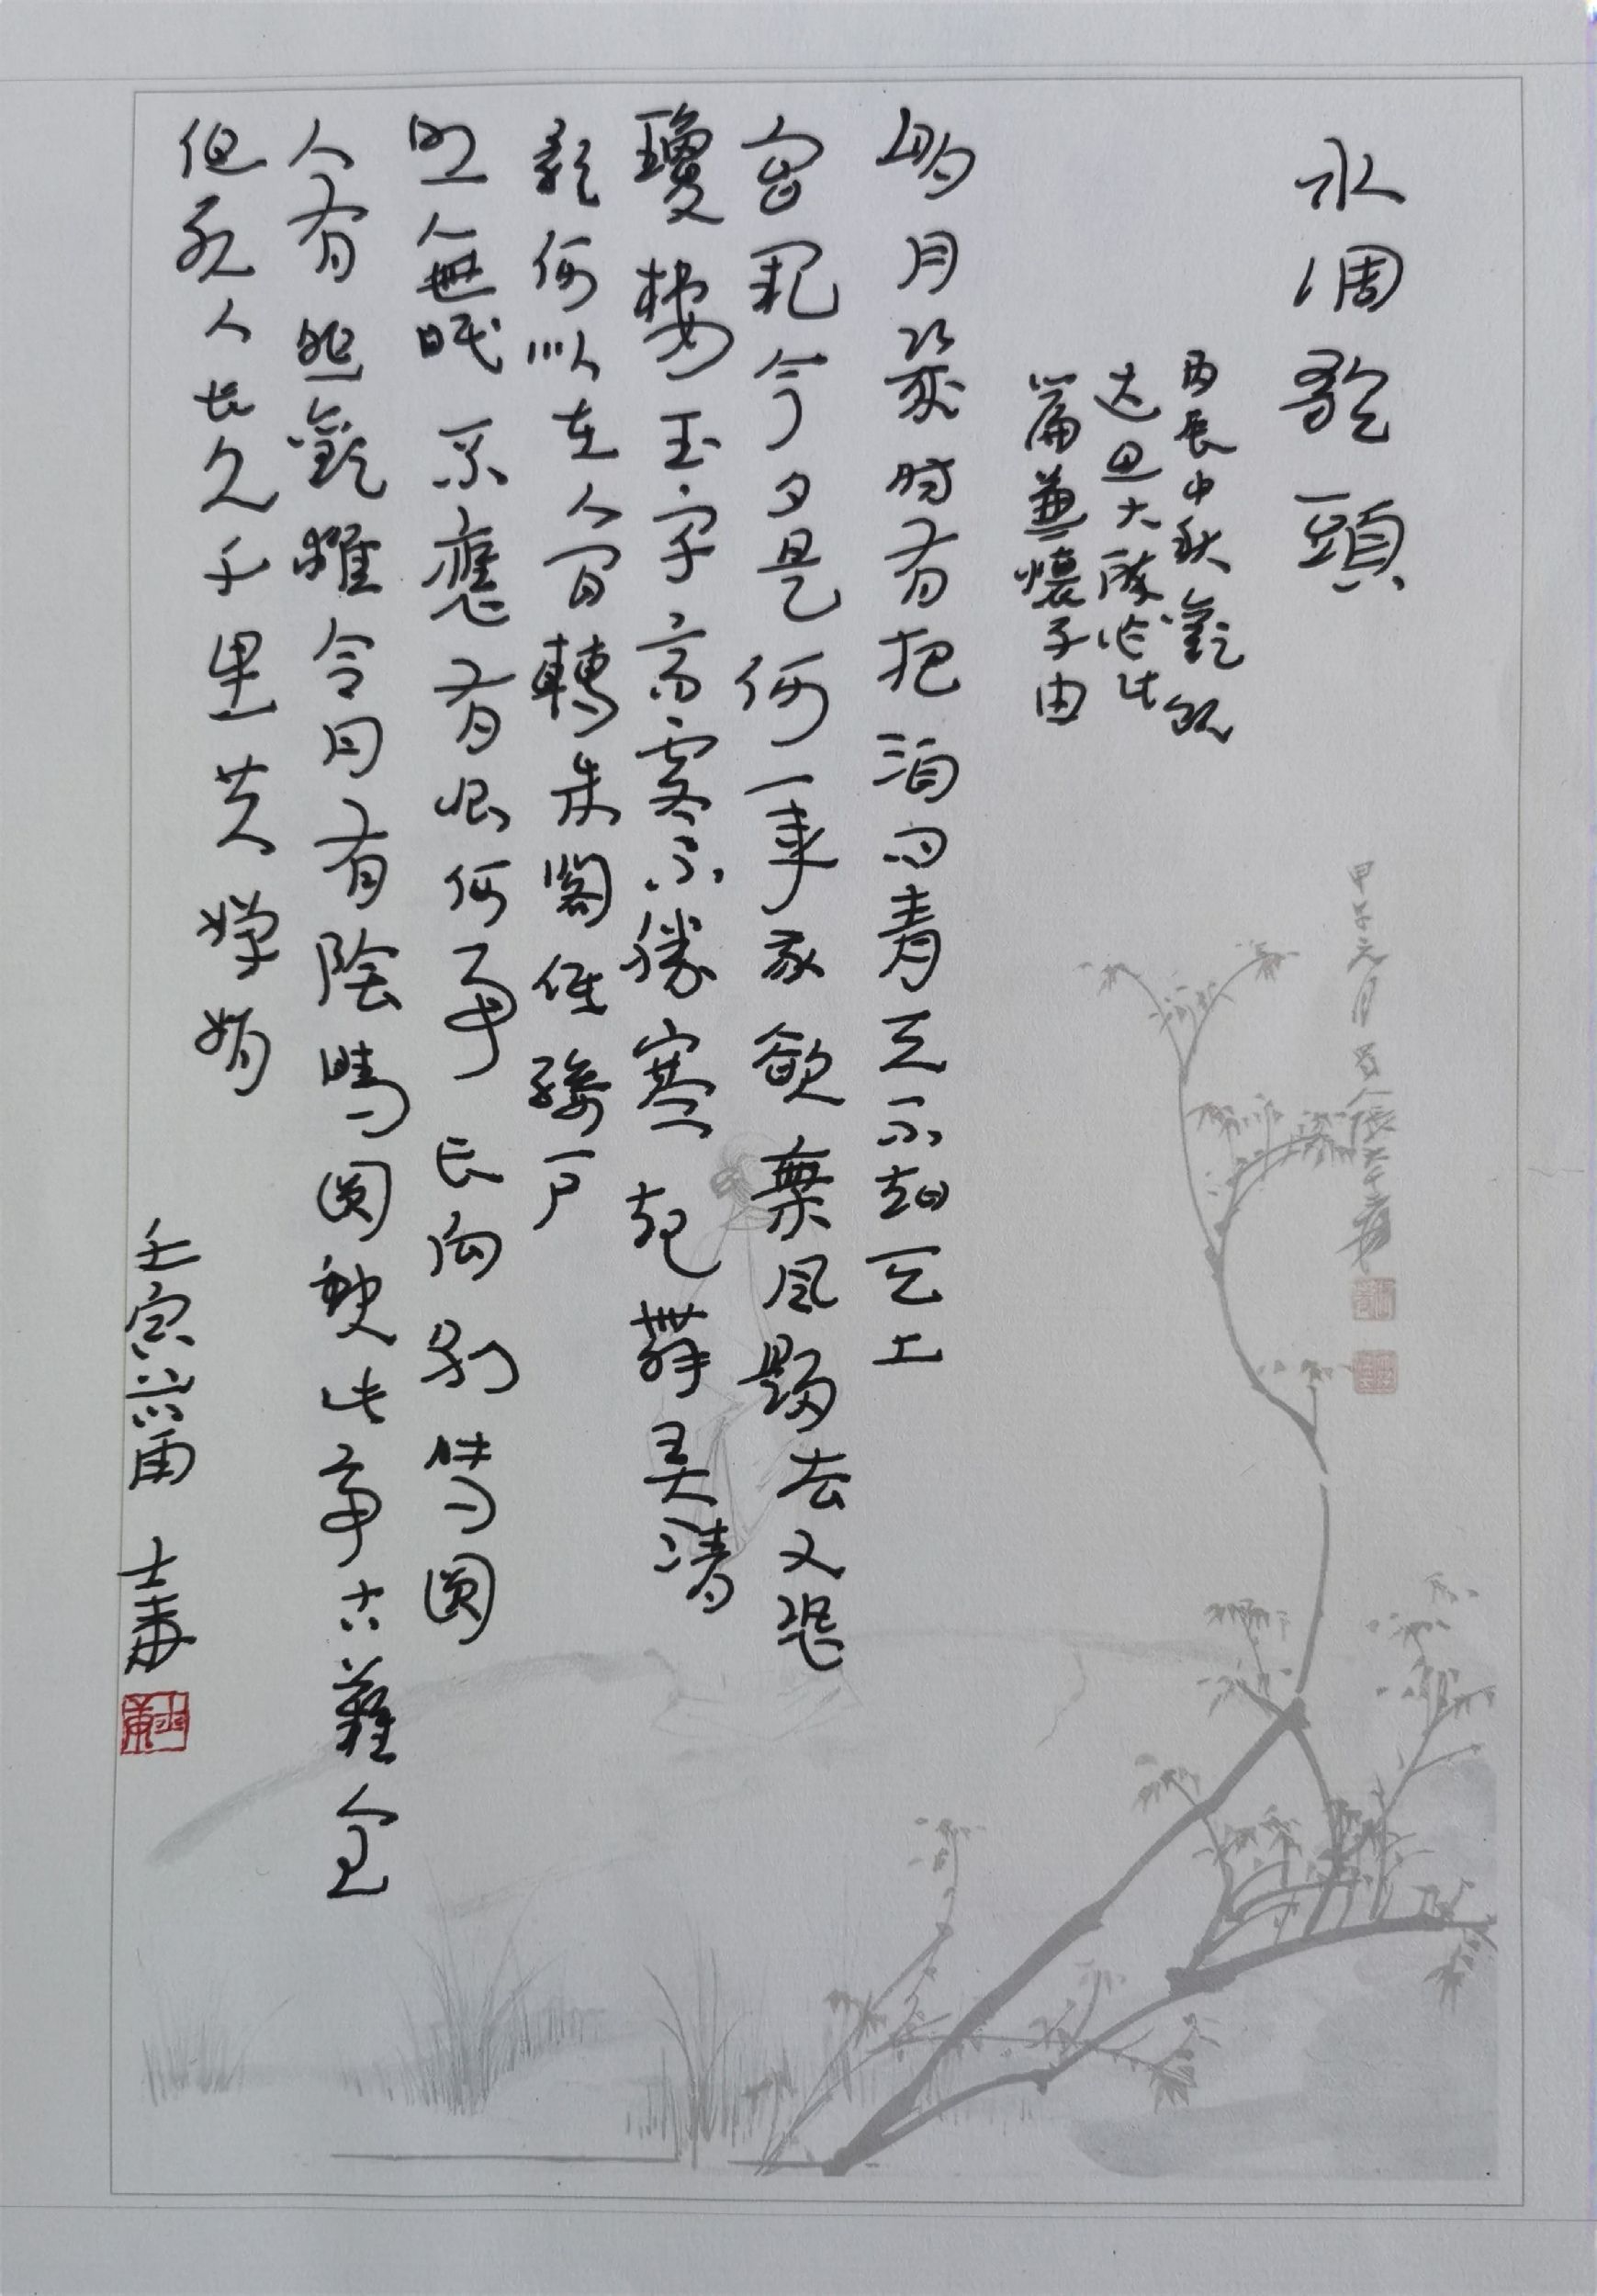 水調歌頭
丙辰中秋歡飲
达旦大醉作此
篇兼懷子由
明月幾時有把酒問青天不知天上
宫闕今夕是何年我欲乘風歸去又恐
瓊樓玉宇高處不勝寒起舞弄清
影何似在人間轉朱閣低綺户
照無眠不應有恨何事長向別時圓
人有悲歡離合月有陰晴圓缺此事古難全
但願人長久千里共嬋娟
壬寅谷雨
甲子元月蜀人張大千爰